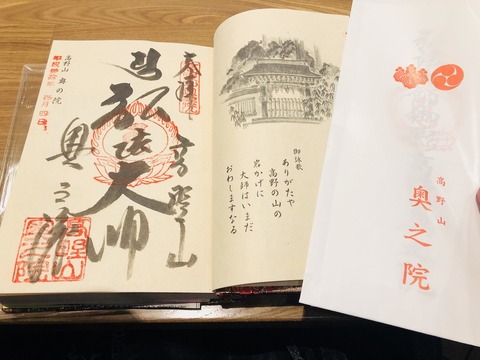 高野山
奥之院
御詠歌
ありがたや
高野の山の
岩かげに
大師はいまだ
おわしますなる
奉拝
高野山
弘法大師
奥之院
高野山 奥の院